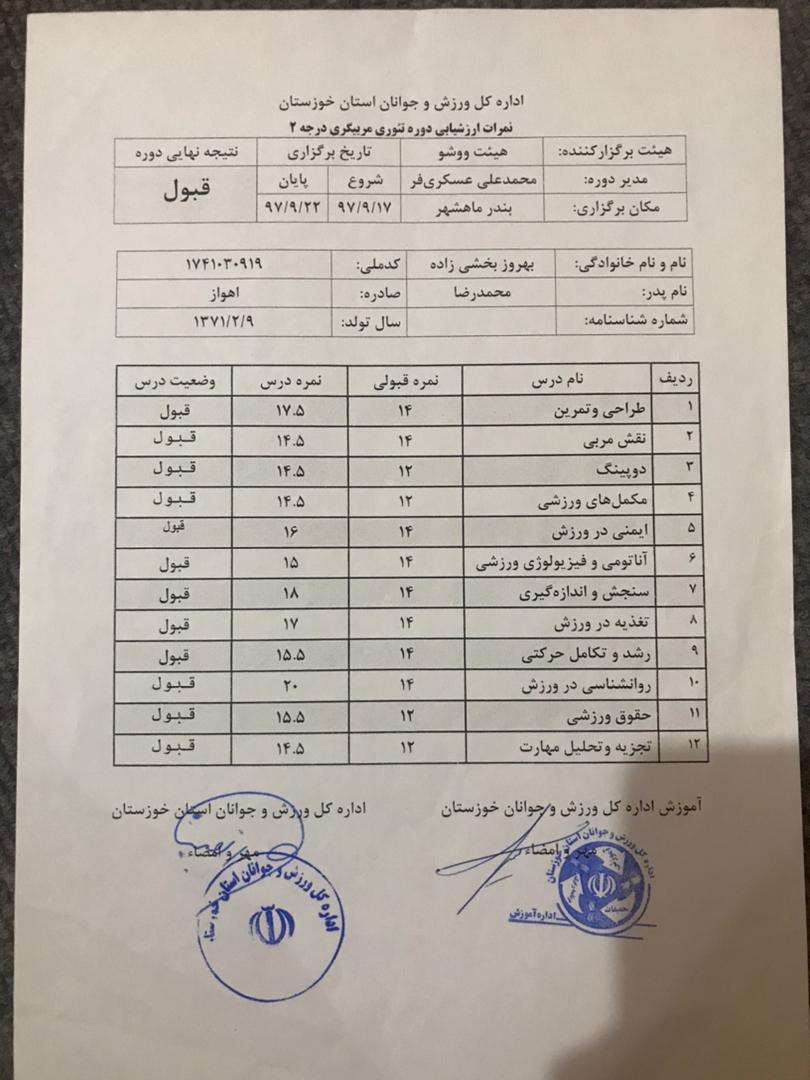 اداره کل ورزش و جوانان استان خوزستان
نمرات ارزشیابی دوره تئوری مربیگری درجه ۲
هیئت برگزارکننده: هیئت ووشو تاریخ برگزاری نتیجه نهایی دوره
مدیر دوره: محمدعلی عسکری‌فر شروع پایان قبول
مکان برگزاری: بندر ماهشهر ۹۷/۹/۱۷ ۹۷/۹/۲۲
نام و نام خانوادگی: بهروز بخشی زاده کدملی: ۱۷۴۱۰۳۰۹۱۹
نام پدر: محمدرضا صادره: اهواز
شماره شناسنامه: سال تولد: ۱۳۷۱/۲/۹
ردیف نام درس نمره قبولی نمره درس وضعیت درس
۱ طراحی وتمرین ۱۴ ۱۷.۵ قبول
۲ نقش مربی ۱۴ ۱۴.۵ قبول
۳ دوپینگ ۱۲ ۱۴.۵ قبول
۴ مکمل‌های ورزشی ۱۲ ۱۴.۵ قبول
۵ ایمنی در ورزش ۱۴ ۱۶ قبول
۶ آناتومی و فیزیولوژی ورزشی ۱۴ ۱۵ قبول
۷ سنجش و اندازه‌گیری ۱۴ ۱۸ قبول
۸ تغذیه در ورزش ۱۴ ۱۷ قبول
۹ رشد و تکامل حرکتی ۱۴ ۱۵.۵ قبول
۱۰ روانشناسی در ورزش ۱۴ ۲۰ قبول
۱۱ حقوق ورزشی ۱۲ ۱۵.۵ قبول
۱۲ تجزیه وتحلیل مهارت ۱۲ ۱۴.۵ قبول
آموزش اداره کل ورزش و جوانان خوزستان اداره کل ورزش و جوانان استان خوزستان
مهر و امضاء مهر و امضاء
اداره کل ورزش و جوانان استان خوزستان
اداره آموزش
اداره کل ورزش و جوانان استان